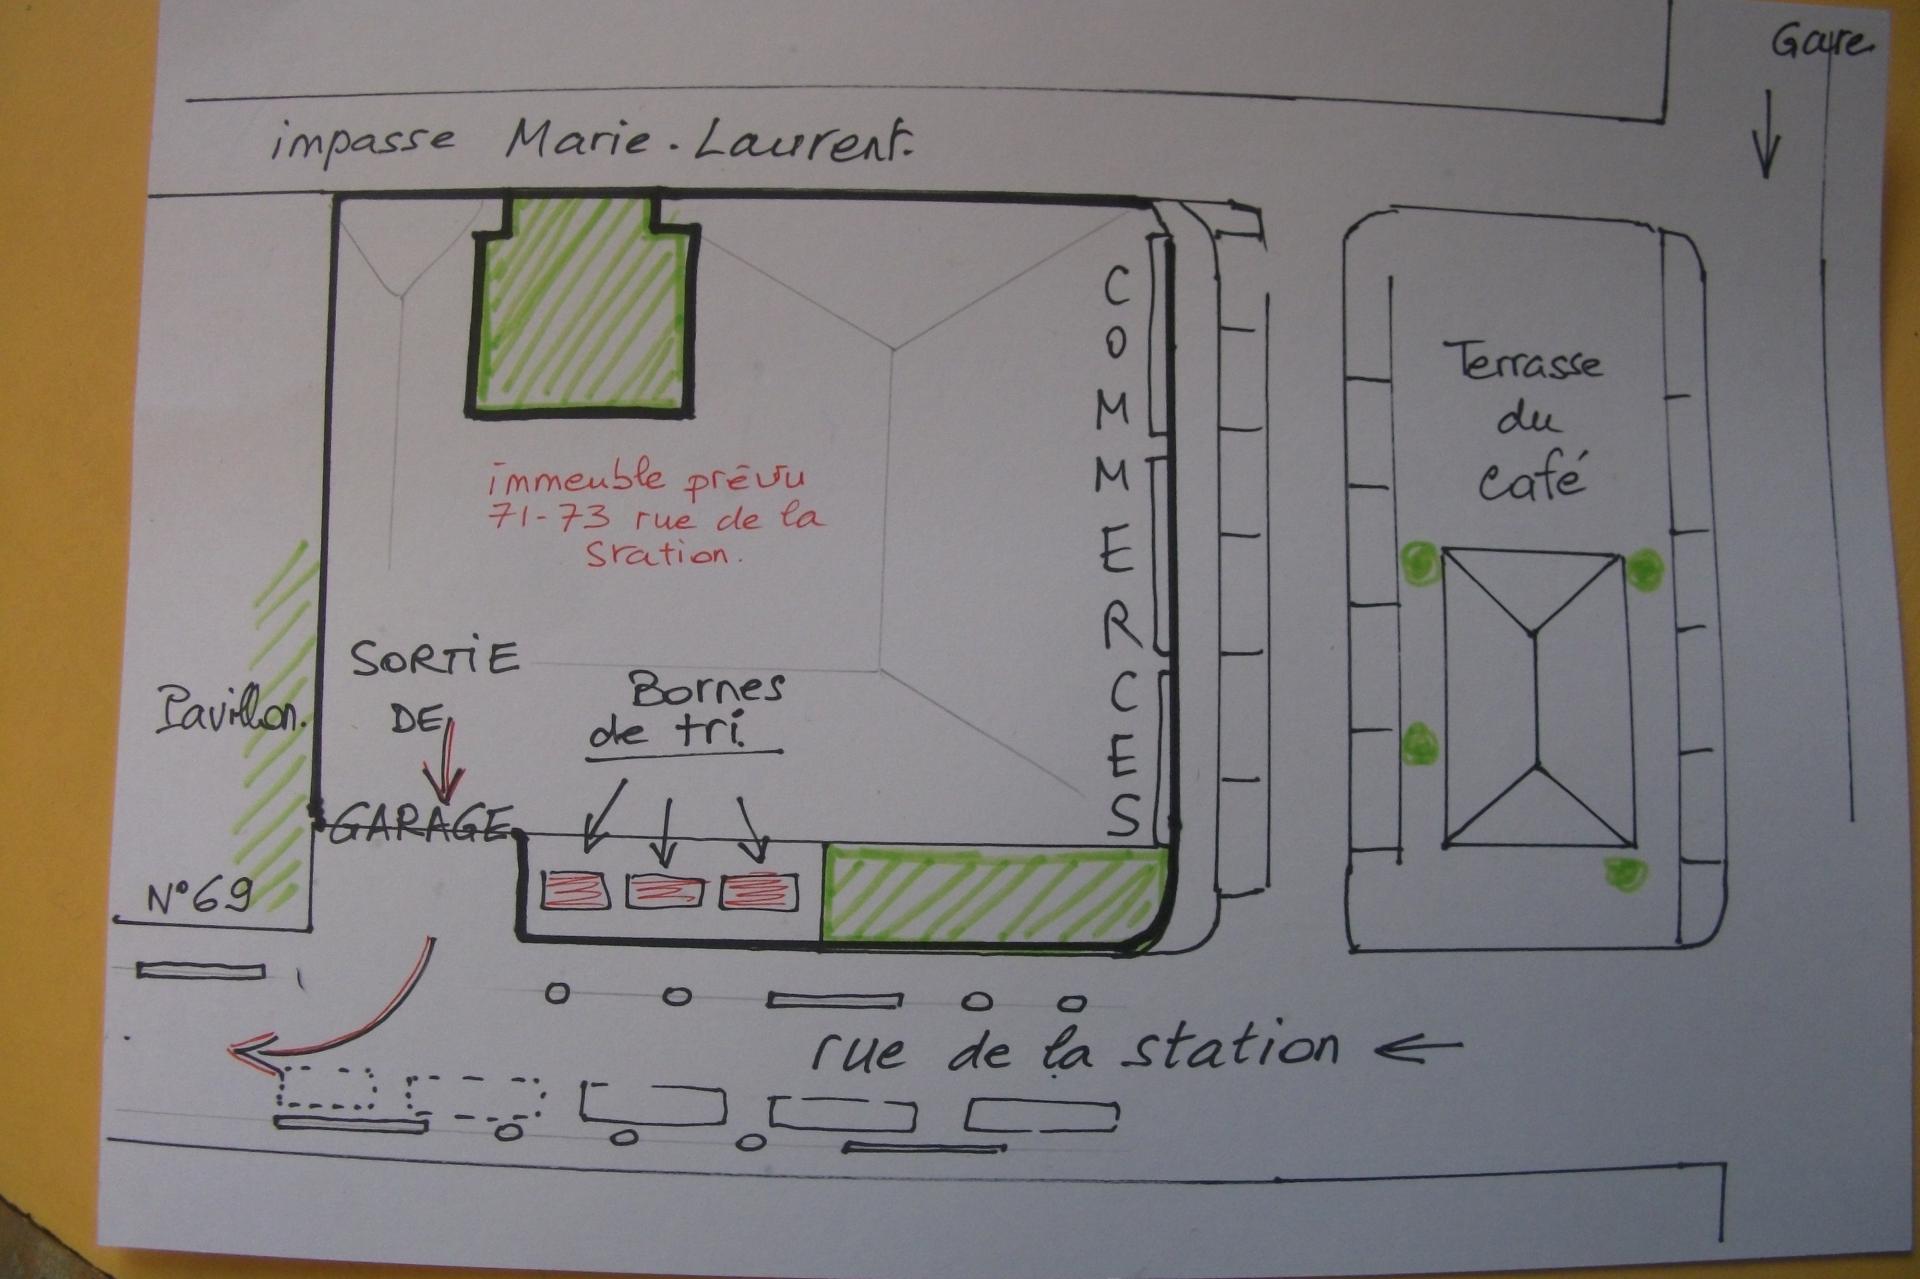 Gare
impasse Marie-Laurent.
COMMERCES
Terrasse
du
Café
immeuble prévu
71-73 rue de la
Station.
SORTIE
DE
GARAGE
Bornes
de tri.
Pavillon.
N°69
rue de la station